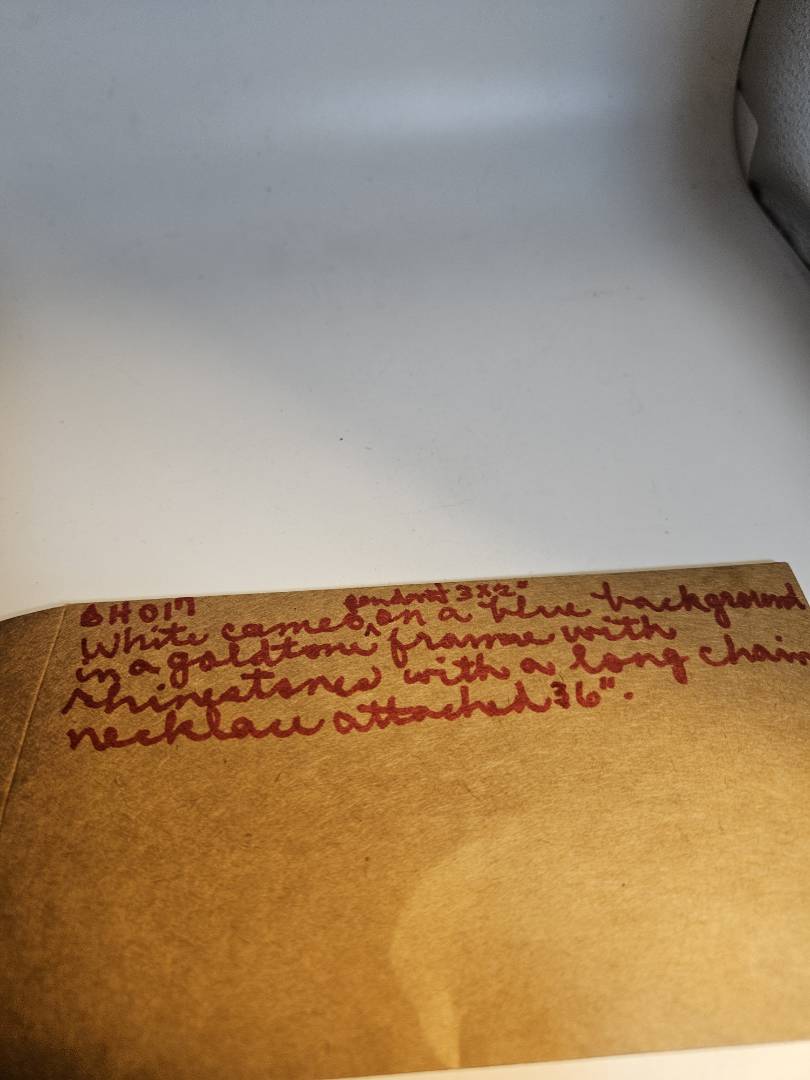 BH017
White cameo, pendant 3x2" on a blue background
in a goldtone frame with
rhinestones with a long chain
necklace attached 36".